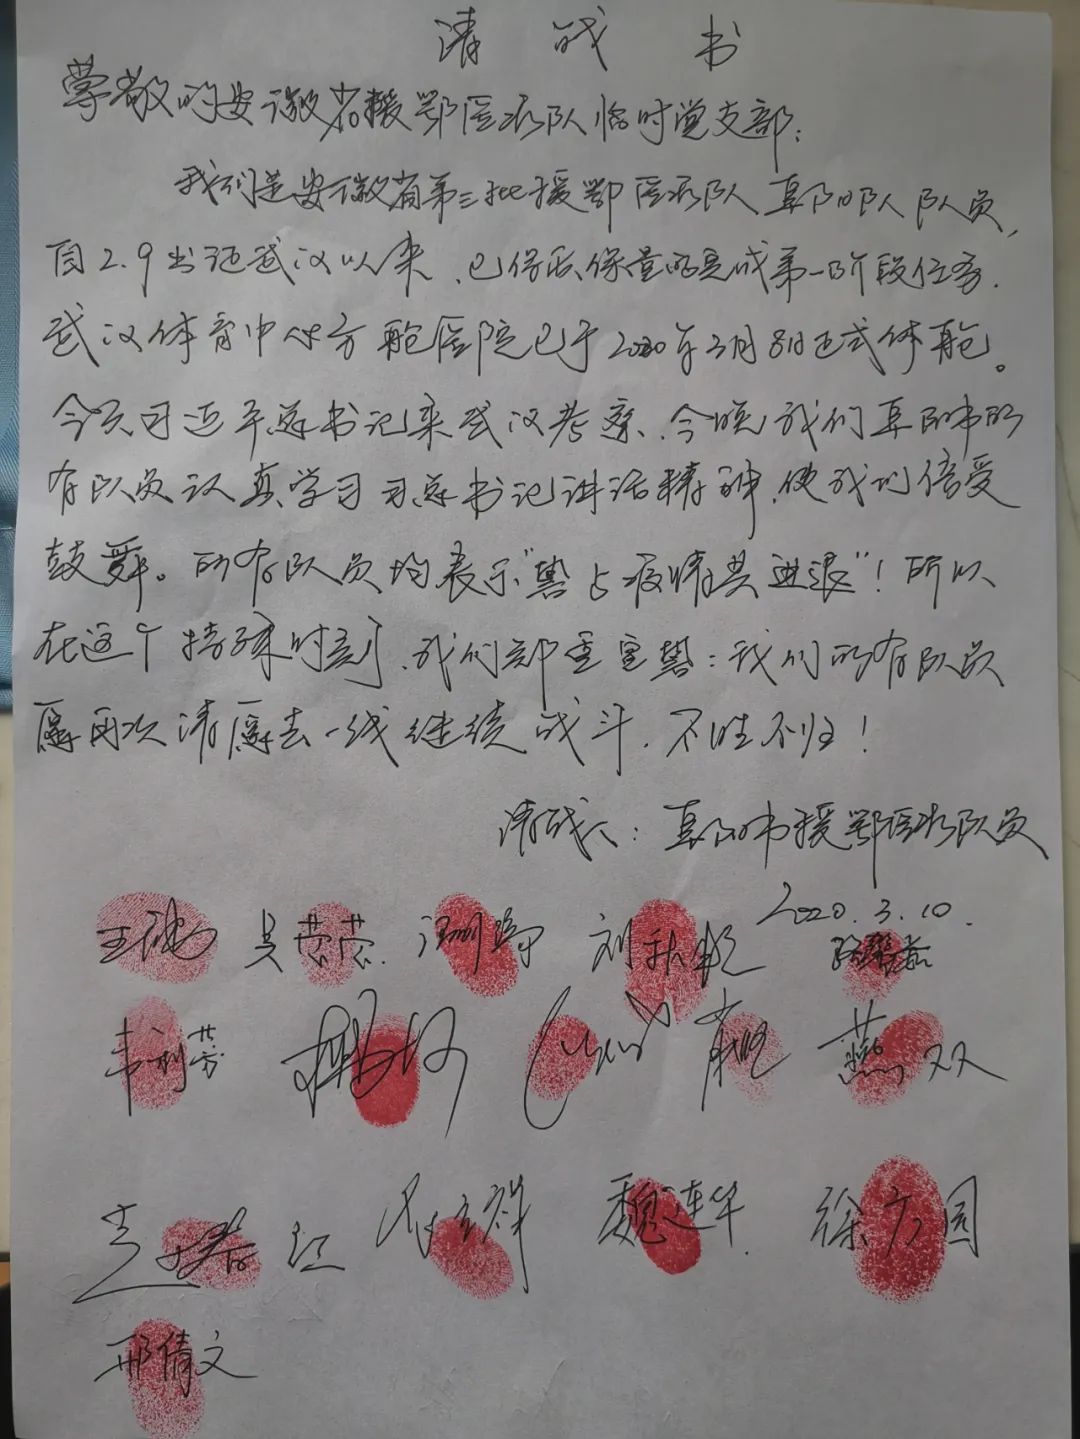 请战书
尊敬的安徽省援鄂医疗队临时党支部：
我们是安徽省第三批援鄂医疗队阜阳队队员，
自2.9出征武汉以来，已保质保量的完成第一阶段任务．
武汉体育中心方舱医院已于2020年3月8日正式休舱。
今天习近平总书记来武汉考察，今晚我们阜阳市所
有队员认真学习习总书记讲话精神，使我们倍受
鼓舞。所有队员均表示"誓与疫情共进退"！所以
在这个特殊时刻，我们郑重宣誓：我们所有队员
愿再次请愿去一线继续战斗，不胜不归！
请战人：阜阳市援鄂医疗队员
2020.3.10.
王 吴芸芸 刘
韦利芳 燕双
魏连华 徐方园
邢倩文